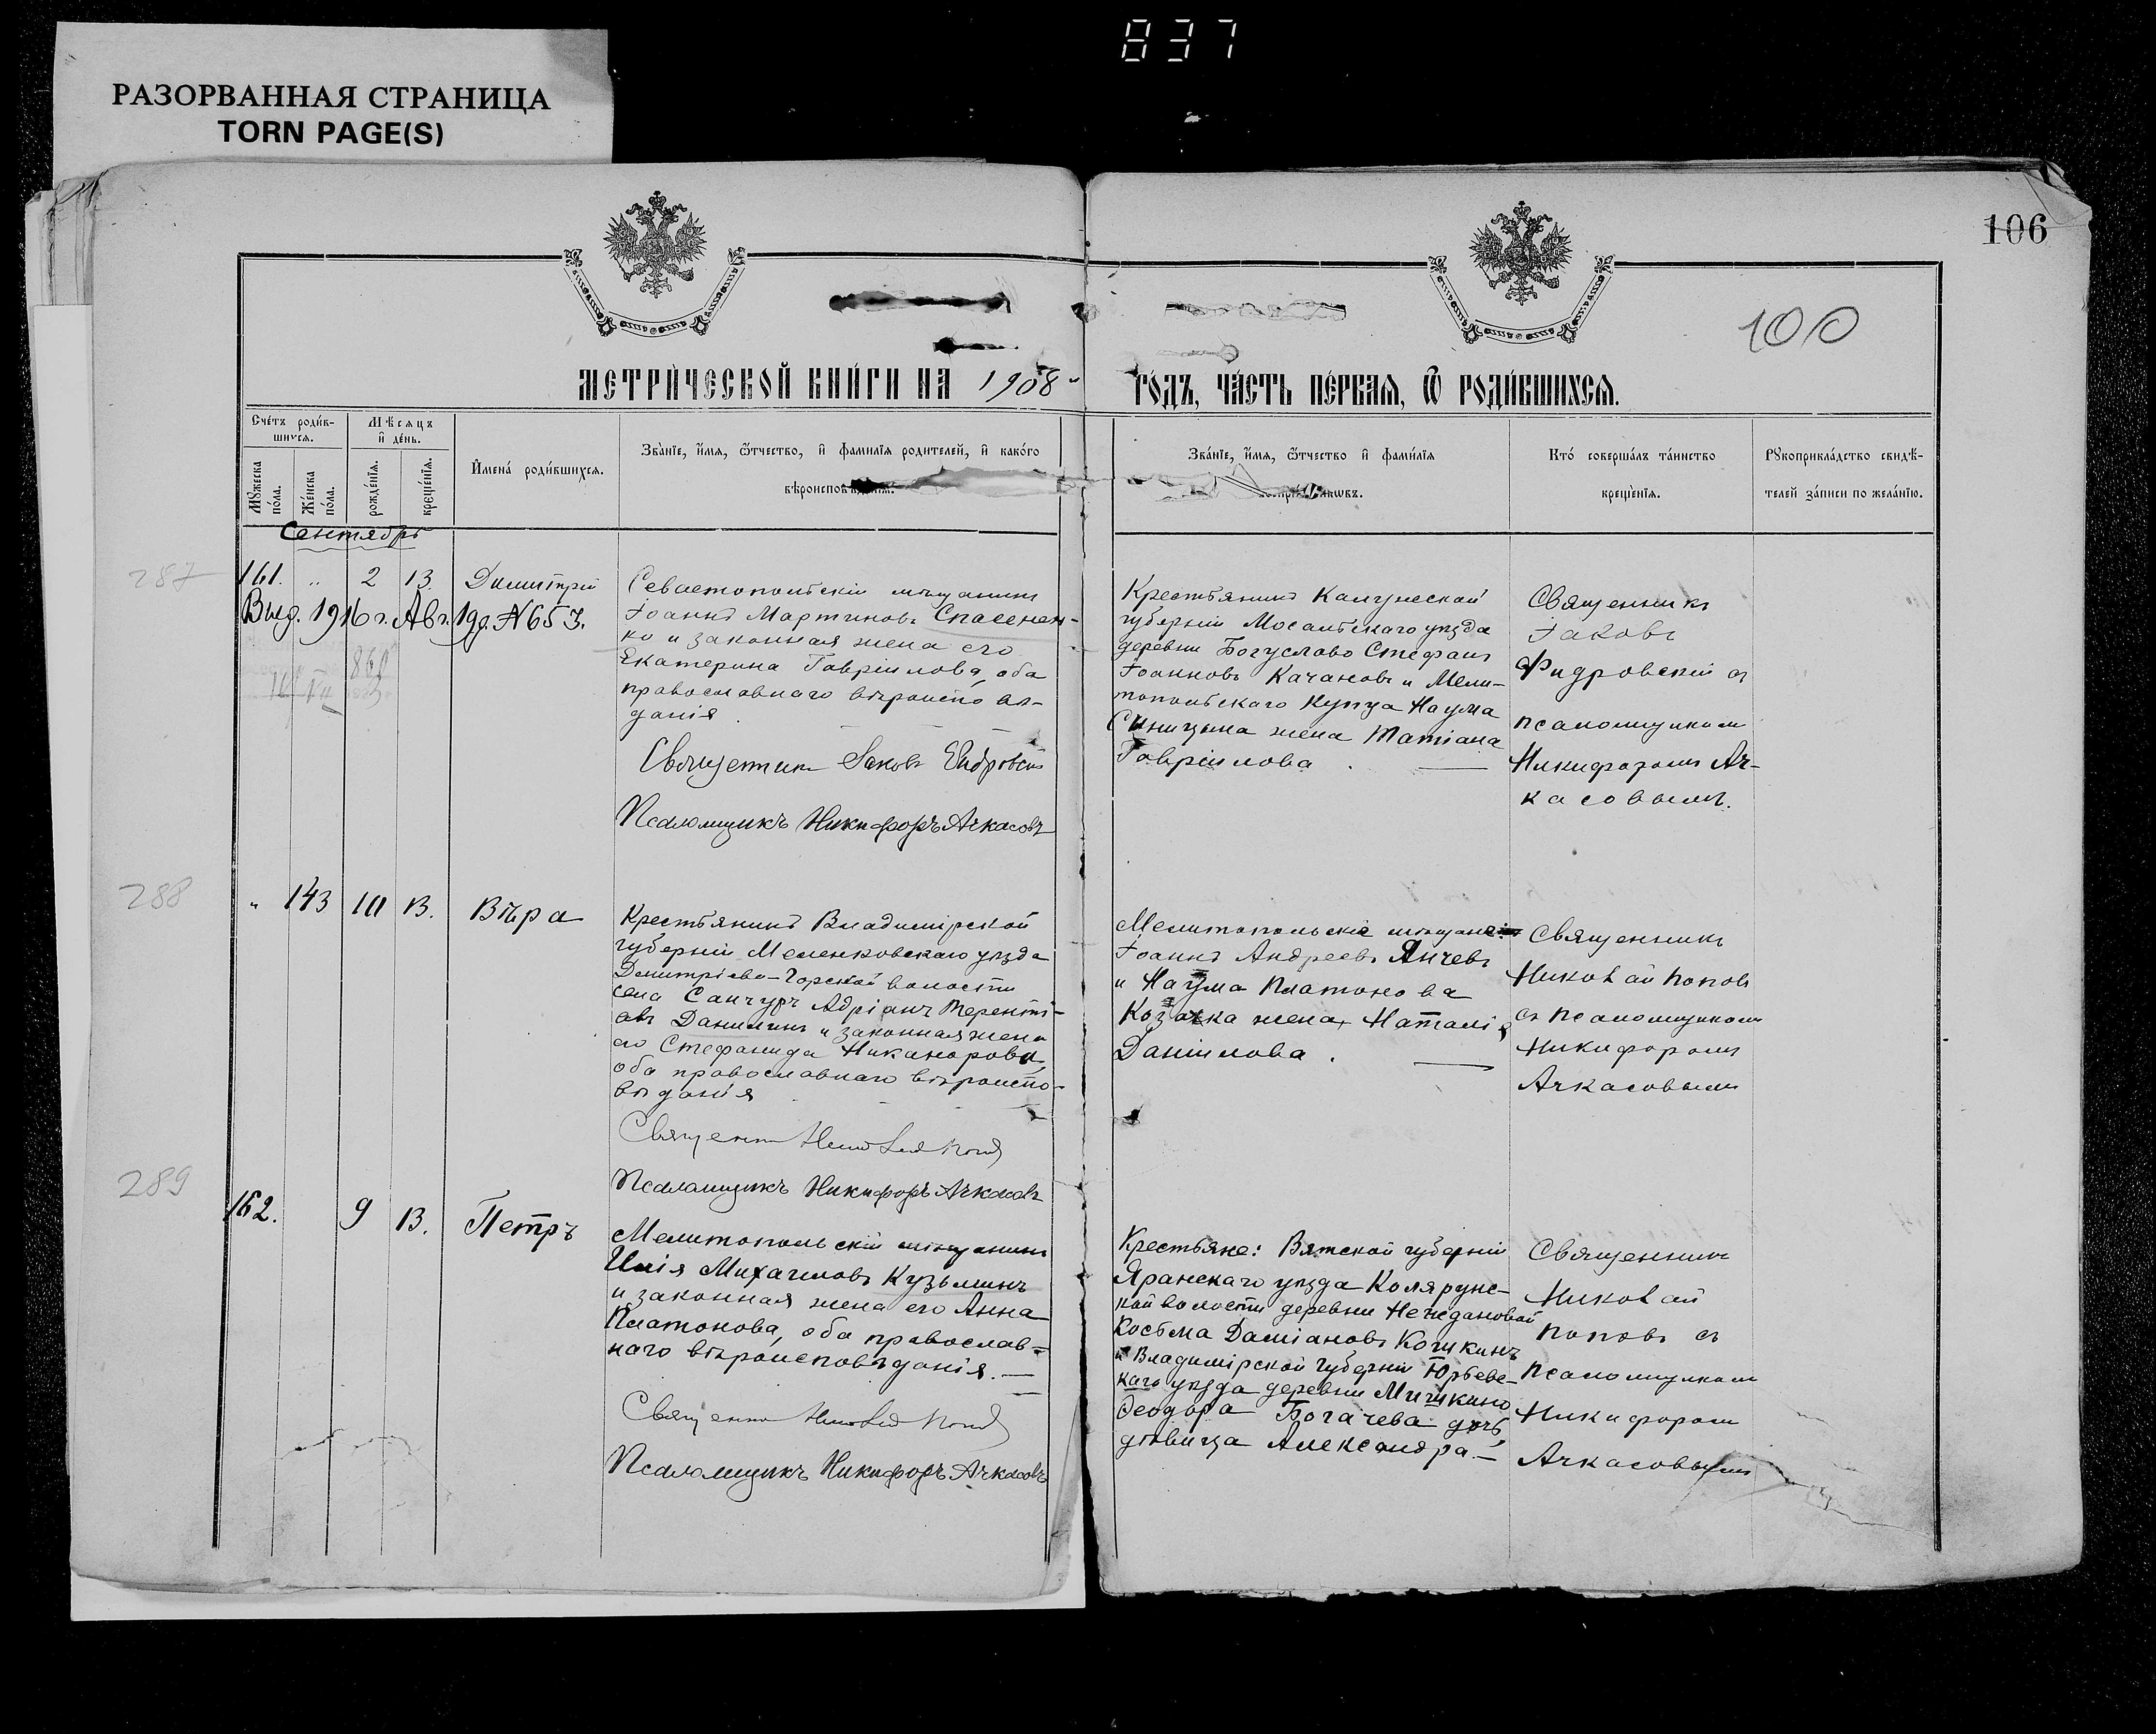 837
РАЗОРВАННАЯ СТРАНИЦА
TORN PAGE(S)
106
100
МЕТРИ́ЧЕСКОЙ КНИ́ГИ НА 1908 ГО́ДЪ, ЧА́СТЬ ПЕ́РВАЯ, Ѿ РОДИ́ВШИХСЯ.
Сче́тъ роди́в-
шихся.
Мѣсяцъ
и де́нь.
Мꙋжеска по́ла.
Же́нска по́ла.
рожде́нїя.
креще́нїя.
И҆мена́ роди́вшихся.
Зва́нїе, и҆́мя, ѻ҆́тчество, и҆ фами́лїя роди́телей, и҆ како́го
вѣроисповѣданїя.
Зва́нїе, и҆́мя, ѻ҆́тчество и҆ фами́лїя
Кто̀ соверша́лъ та́инство
креще́нїя.
Рꙋкоприкла́дство свидѣ́-
телей за́писи по жела́нїю.
Сентябрь
287
161. „ 2 13. Димитрій
Выд. 1916 г. Авг. 19д. № 653.
Севастопольскій мѣщанинъ
Іоаннъ Мартиновъ Спасенен-
ко и законная жена его
Екатерина Гавріилова, оба
православнаго вѣроиспо вѣ-
данія.
Священникъ Іаковъ
Псаломщикъ Никифоръ Ачкасовъ
Крестьянинъ Калужской
губерніи Мосальскаго уѣзда
деревни Богуслово Стефанъ
Іоанновъ Качановъ и Мели-
топольскаго Купца Наума
Синицына жена Татіана
Гавріилова.
Священникъ
Іаковъ
Фидровскій съ
псаломщикомъ
Никифоромъ Ач-
касовымъ.
288
„ 143 10 13. Вѣра
Крестьянинъ Владимірской
губерніи Меленковскаго уѣзда
Димитріево-Горской волости
села Санчуръ Адріанъ Теренті-
евъ Данилинъ и законная жена
его Стефанида Никанорова,
оба православнаго вѣроиспо-
вѣданія
Священникъ Николай Поповъ
Псаломщикъ Никифоръ Ачкасовъ
Мелитопольскіе мѣщане:
Іоаннъ Андреевъ Янчевъ
и Наума Платонова
Козачка жена, Наталія
Даніилова.
Священникъ
Николай Поповъ
съ псаломщикомъ
Никифоромъ
Ачкасовымъ
289
162. 9 13. Петръ
Мелитопольскій мѣщанинъ
Илія Михаиловъ Кузьминъ
и законная жена его Анна
Платонова, оба православ-
наго вѣроисповѣданія.—
Священникъ Николай Поповъ
Псаломщикъ Никифоръ Ачкасовъ
Крестьяне: Вятской губерніи
Яранскаго уѣзда Колярунс-
кой волости деревни Неждановой
Косьма Даміановъ Кошкинъ
и Владимірской губерніи Юрьевс-
каго уѣзда деревни Мишкино
Ѳеодора Богачева дочь,
дѣвица Александра.—
Священникъ
Николай
Поповъ съ
псаломщикомъ
Никифоромъ
Ачкасовымъ